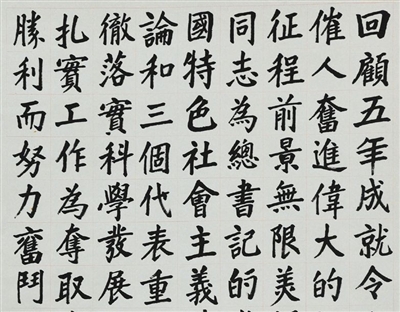 回顧五年成就令
催人奮進偉大的
征程前景無限美
同志為總書記的
國特色社會主義
論和三個代表重
徹落實科學發展
扎實工作為奪取
勝利而努力奮鬥